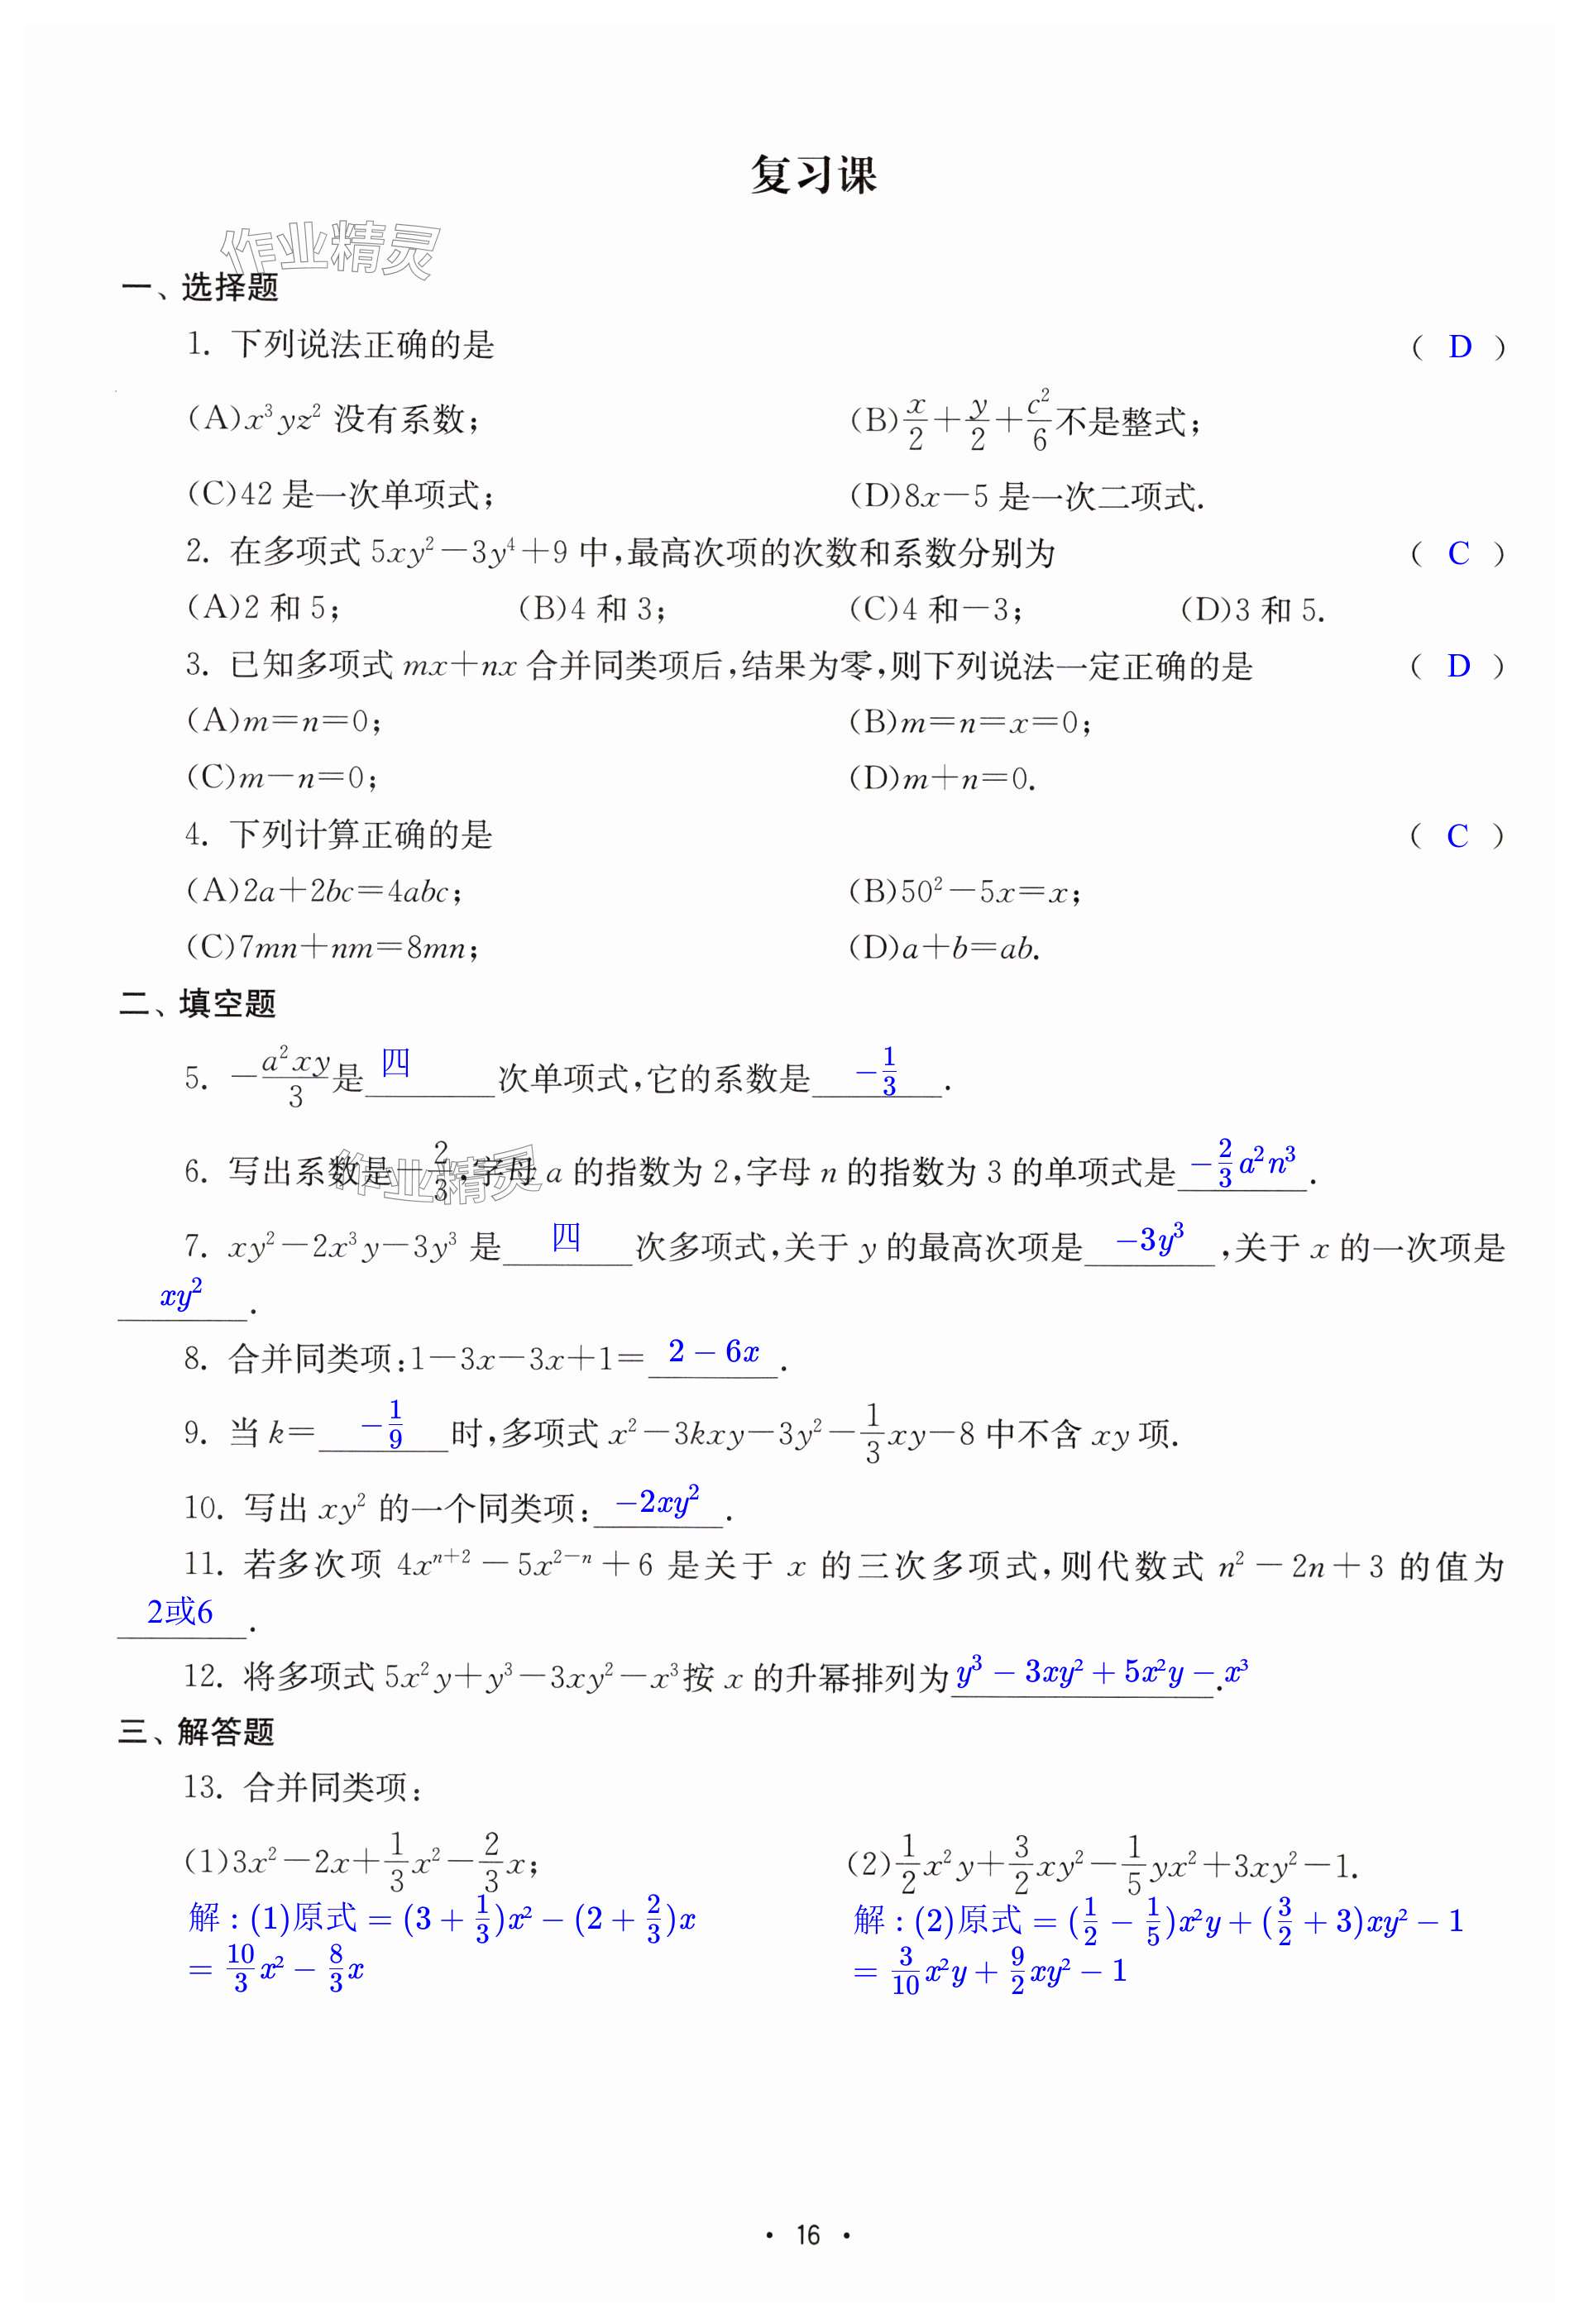 复习课
作业精灵
一、选择题
1. 下列说法正确的是 ( D )
(A)x³yz² 没有系数; (B)x/2+y/2+c²/6不是整式;
(C)42 是一次单项式; (D)8x-5 是一次二项式.
2. 在多项式 5xy²-3y⁴+9 中,最高次项的次数和系数分别为 ( C )
(A)2 和 5; (B)4 和 3; (C)4 和-3; (D)3 和 5.
3. 已知多项式 mx+nx 合并同类项后,结果为零,则下列说法一定正确的是 ( D )
(A)m=n=0; (B)m=n=x=0;
(C)m-n=0; (D)m+n=0.
4. 下列计算正确的是 ( C )
(A)2a+2bc=4abc; (B)50²-5x=x;
(C)7mn+nm=8mn; (D)a+b=ab.
二、填空题
5. -a²xy/3是 四 次单项式,它的系数是 -1/3 .
6. 写出系数是-2/3,字母 a 的指数为 2,字母 n 的指数为 3 的单项式是 -2/3a²n³ .
作业精灵
7. xy²-2x³y-3y³ 是 四 次多项式,关于 y 的最高次项是 -3y³ ,关于 x 的一次项是
xy² .
8. 合并同类项:1-3x-3x+1= 2-6x .
9. 当 k= -1/9 时,多项式 x²-3kxy-3y²-1/3xy-8 中不含 xy 项.
10. 写出 xy² 的一个同类项: -2xy² .
11. 若多次项 4xⁿ⁺²-5x²⁻ⁿ+6 是关于 x 的三次多项式,则代数式 n²-2n+3 的值为
2或6 .
12. 将多项式 5x²y+y³-3xy²-x³按 x 的升幂排列为 y³-3xy²+5x²y-x³ .
三、解答题
13. 合并同类项:
(1)3x²-2x+1/3x²-2/3x; (2)1/2x²y+3/2xy²-1/5yx²+3xy²-1.
解:(1)原式=(3+1/3)x²-(2+2/3)x 解:(2)原式=(1/2-1/5)x²y+(3/2+3)xy²-1
=10/3x²-8/3x =3/10x²y+9/2xy²-1
· 16 ·